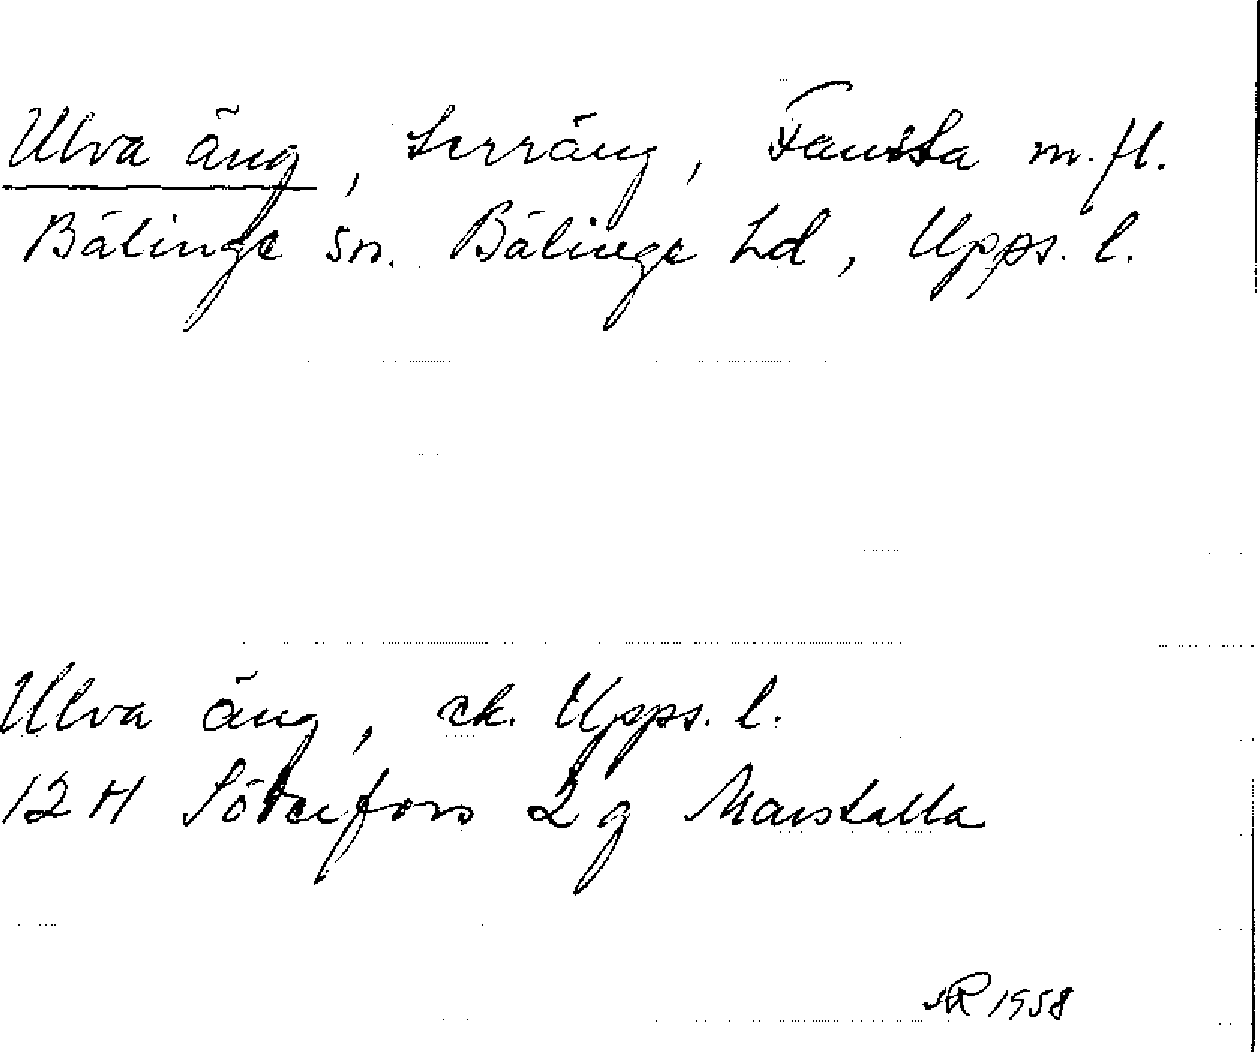 Ulva äng, Lerräng, Fansta m.fl.
Bälinge sn. Bälinge hd, Upps. l.
Ulva äng, ek. Upps. l.
12 H Söderfors 2 g Marstalla
NR 1958